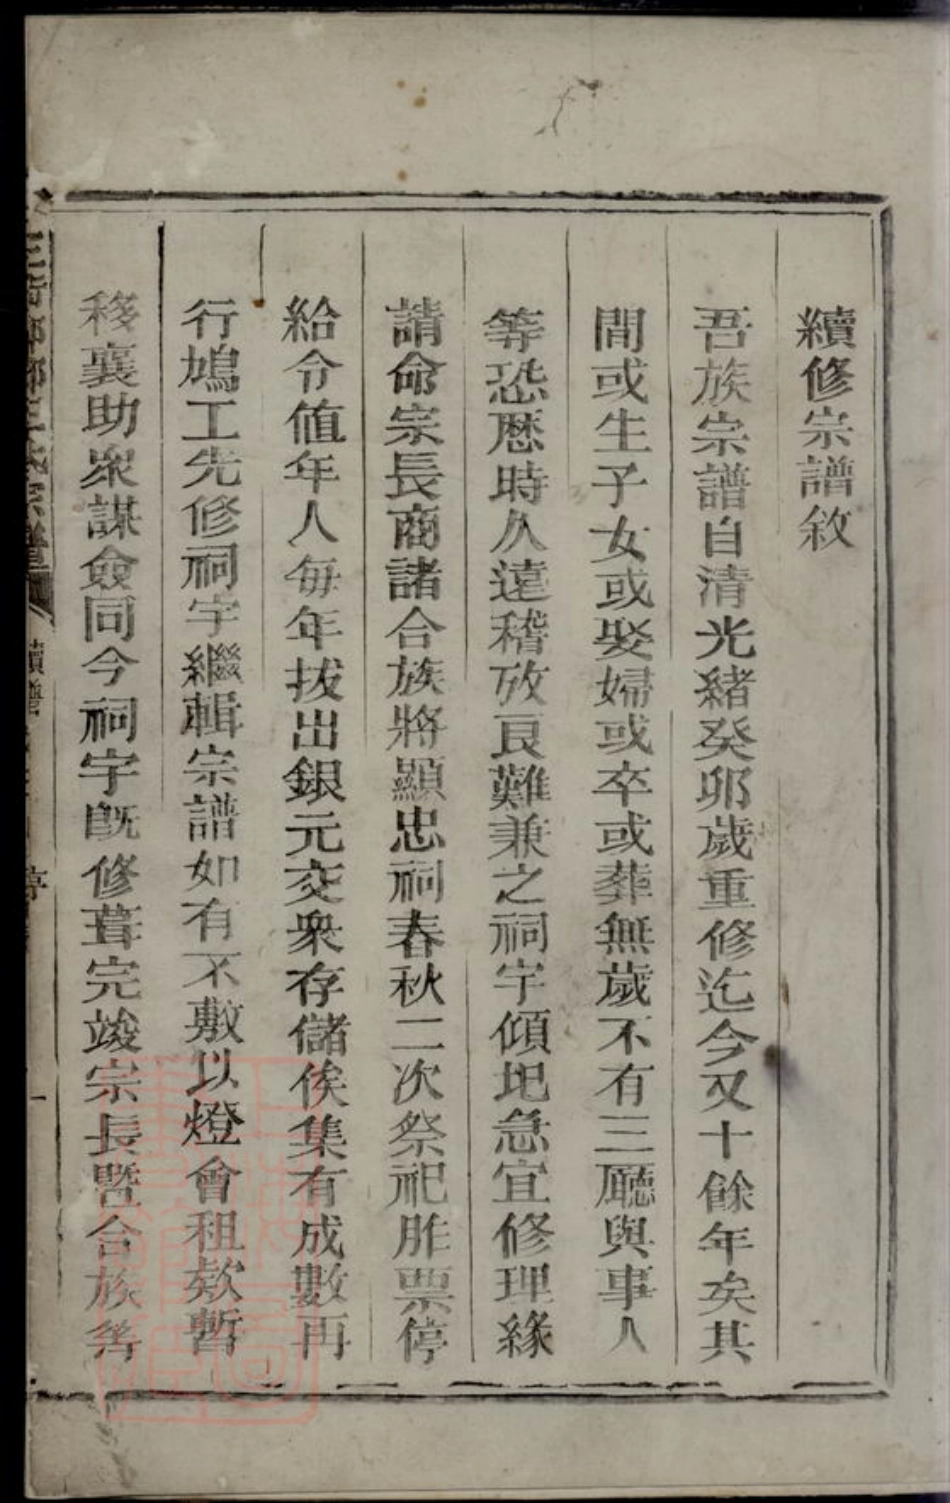 續修宗譜敘
吾族宗譜自清光緒癸卯歲重修迄今又十餘年矣其
間或生子女或娶婦或卒或葬無歲不有三廳與事人
等恐歷時久遠稽攷艮難兼之祠宇傾圯急宜修理緣
請命宗長商諸合族將顯忠祠春秋二次祭祀胙票停
給令值年人每年拔出銀元交衆存儲俟集有成數再
行鳩工先修祠宇繼輯宗譜如有不敷以燈會租欵暫
移襄助衆謀僉同今祠宇旣修葺完竣宗長曁合族等